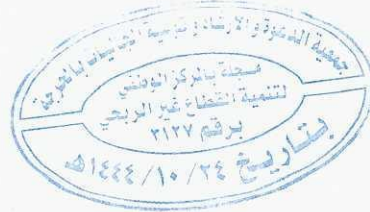 جمعية الدعوة والإرشاد وتوعية الجاليات بالخرمة
مسجلة بالمركز الوطني
لتنمية القطاع غير الربحي
برقم ٣١٢٧
بتاريخ ١٤٤٤/١٠/٢٤هـ